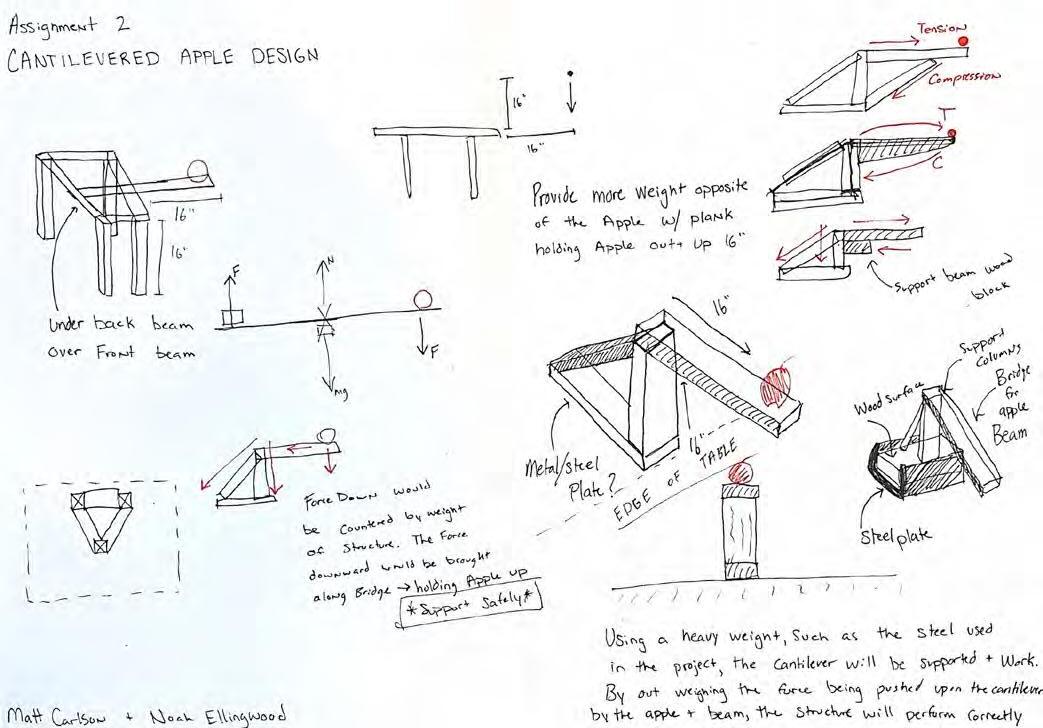 Assignment 2
CANTILEVERED APPLE DESIGN
Tension
Compression
T
C
16"
16"
Provide more weight opposite
of the Apple w/ plank
holding Apple out + up 16"
Support beam wood
block
16"
16"
Under back beam
over Front beam
F
N
F
mg
16"
16"
Metal/steel
Plate?
EDGE OF TABLE
Support
Columns
Wood surface
Bridge
for
apple
Beam
Steel plate
Force Down would
be countered by weight
of structure. The Force
downward would be brought
along Bridge → holding Apple up
*Support Safely*
Using a heavy weight, Such as the steel used
in the project, the cantilever will be supported + work.
By out weighing the force being pushed upon the cantilever
by the apple + beam, the structure will perform correctly
Matt Carlson + Noah Ellingwood